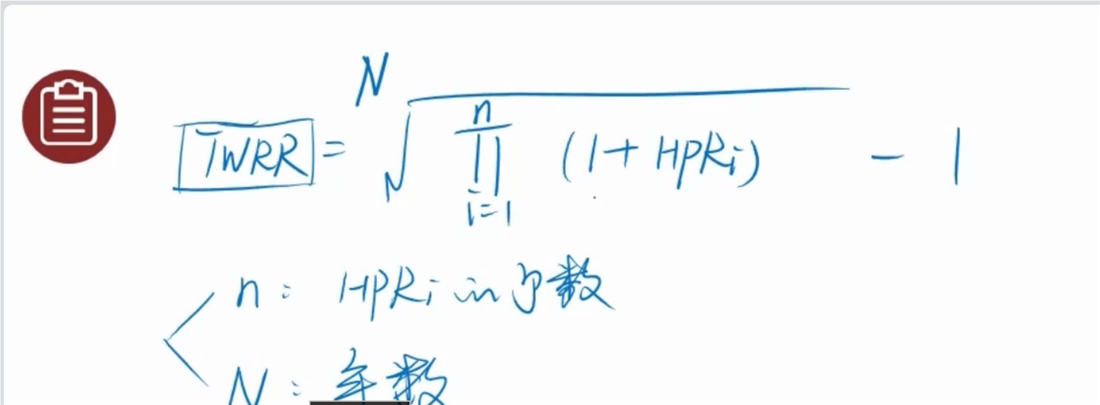 TWRR = ᴺ√ n∏i=1 (1 + HPRi) − 1
n: HPRi 的个数
N: 年数